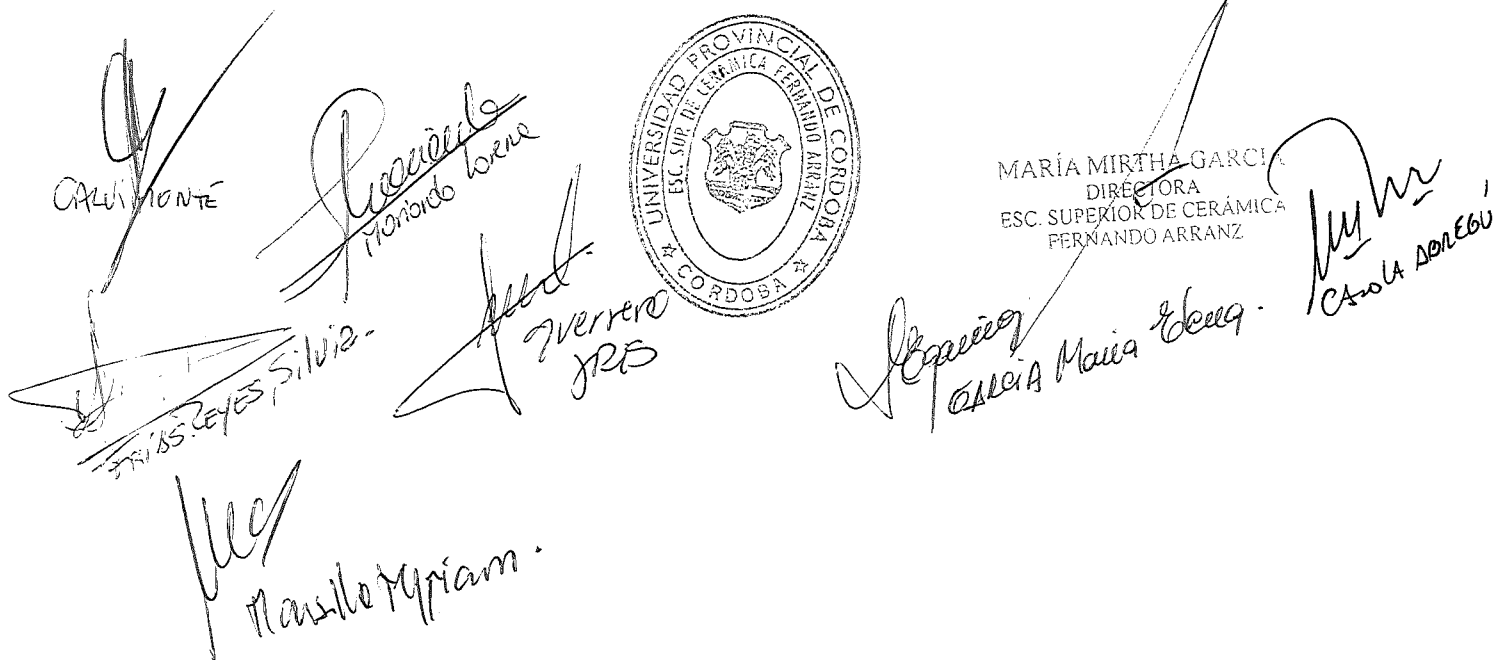 CALVIMONTE
Moriondo Lorena
UNIVERSIDAD PROVINCIAL DE CORDOBA
ESC. SUP. DE CERÁMICA FERNANDO ARRANZ
CORDOBA
MARÍA MIRTHA GARCIA
DIRECTORA
ESC. SUPERIOR DE CERÁMICA
FERNANDO ARRANZ
CAROLA ABREGÚ
GARCIA Maria Elena.
Guerrero
FRIAS REYES, Silvia.
Mansilla Myriam.